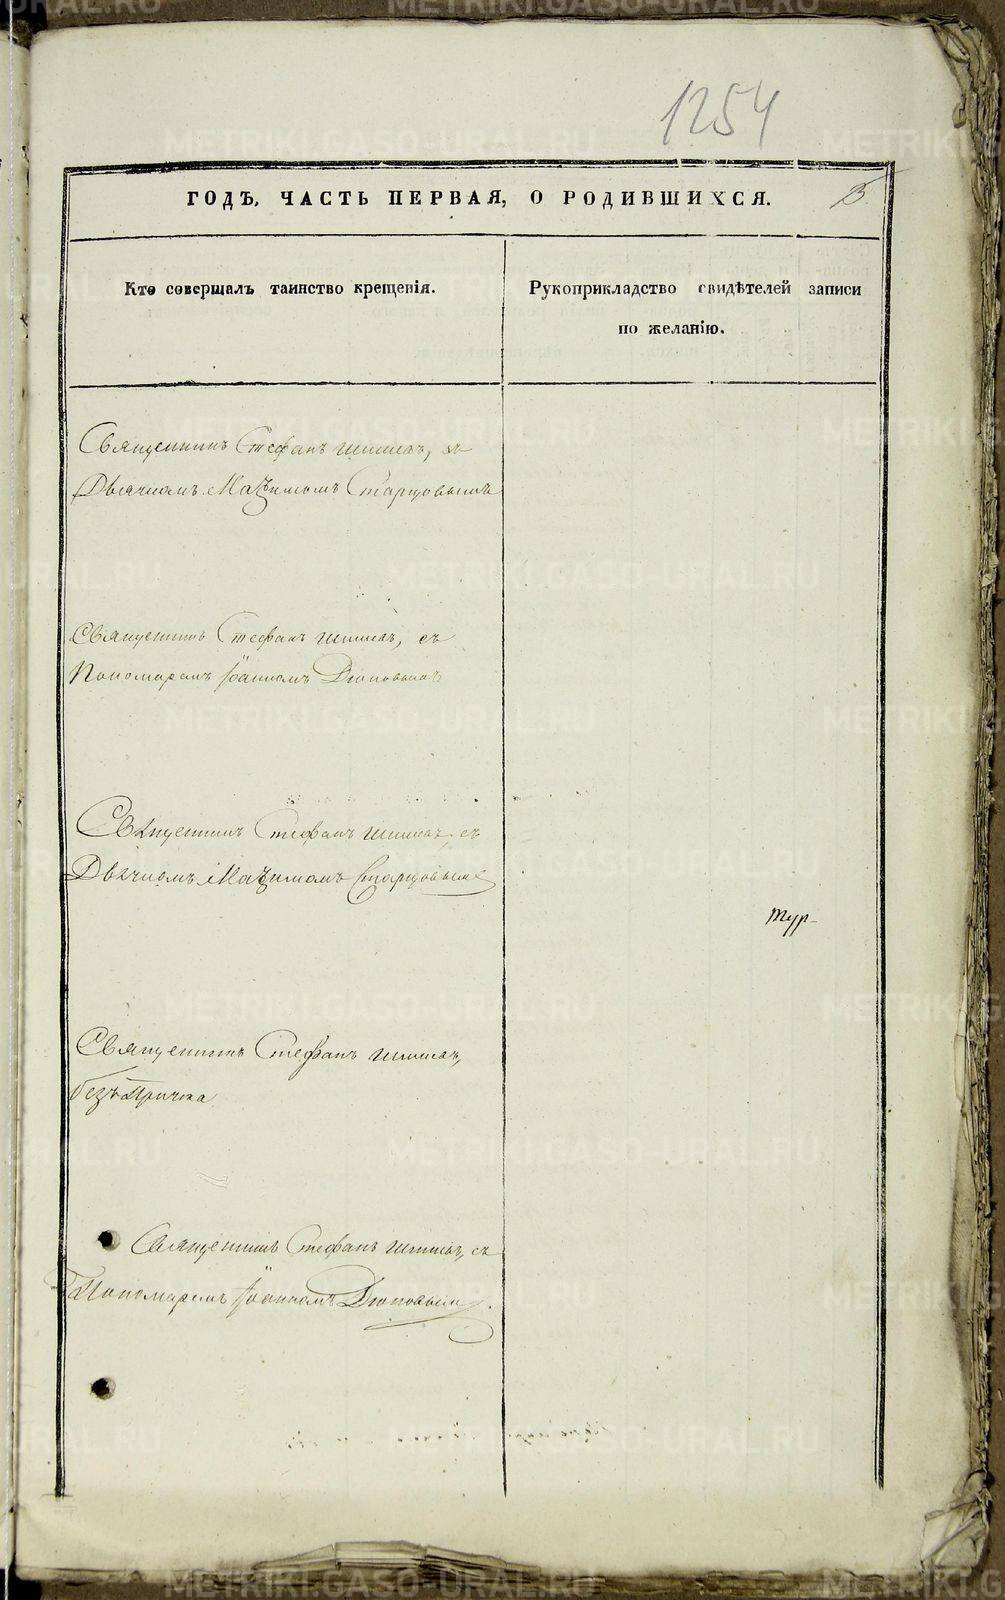 1254
ГОДЪ, ЧАСТЬ ПЕРВАЯ, О РОДИВШИХСЯ.
Кто совершалъ таинство крещенія.
Рукоприкладство свидѣтелей записи
по желанію.
Священникъ Стефанъ Шишевъ, съ
Дьячкомъ Маѯимомъ Старцовымъ
Священникъ Стефанъ Шишевъ, съ
Пономаремъ Іоанномъ Дюповымъ
Священникъ Стефанъ Шишевъ, съ
Дьячкомъ Маѯимомъ Старцовымъ
Тур-
Священникъ Стефанъ Шишевъ,
безъ Причта
Священникъ Стефанъ Шишевъ, съ
Пономаремъ Іоанномъ Дюповымъ.
METRIKI.GASO-URAL.RU